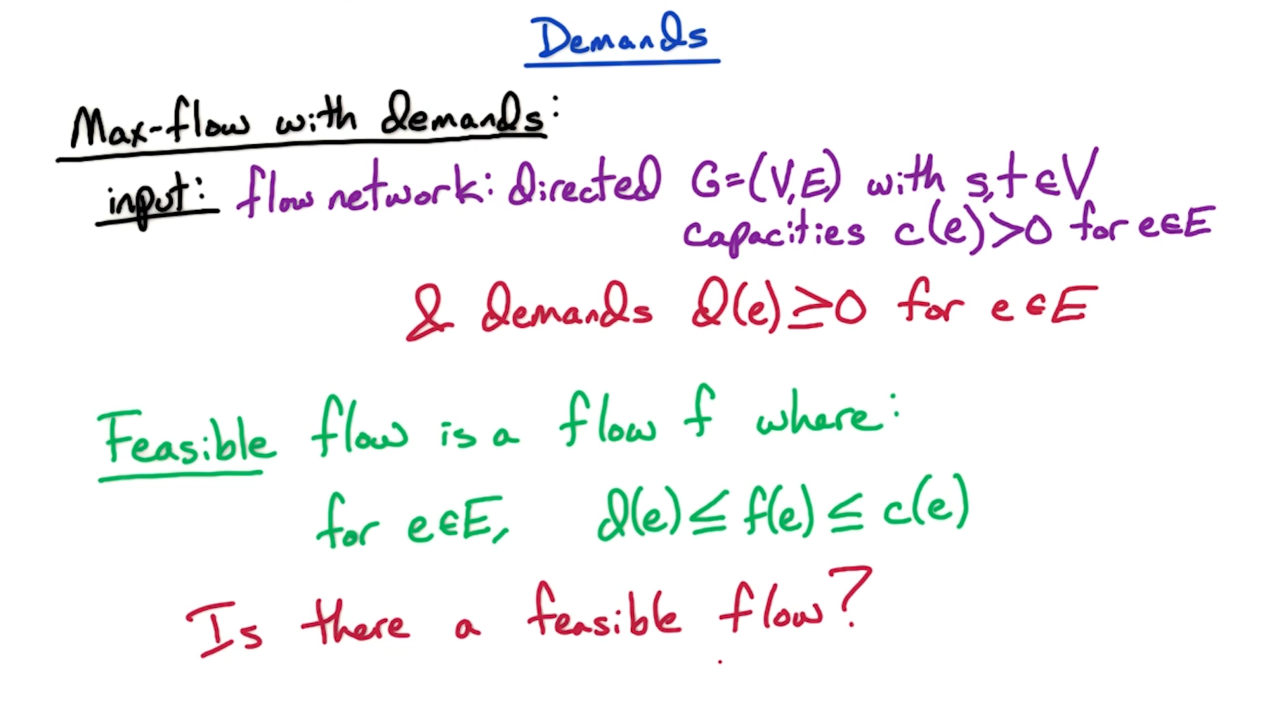 Demands
Max-flow with demands:
input: flow network: directed G=(V,E) with s,t∈V
capacities c(e)>0 for e∈E
& demands d(e)≥0 for e∈E
Feasible flow is a flow f where:
for e∈E, d(e)≤f(e)≤c(e)
Is there a feasible flow?